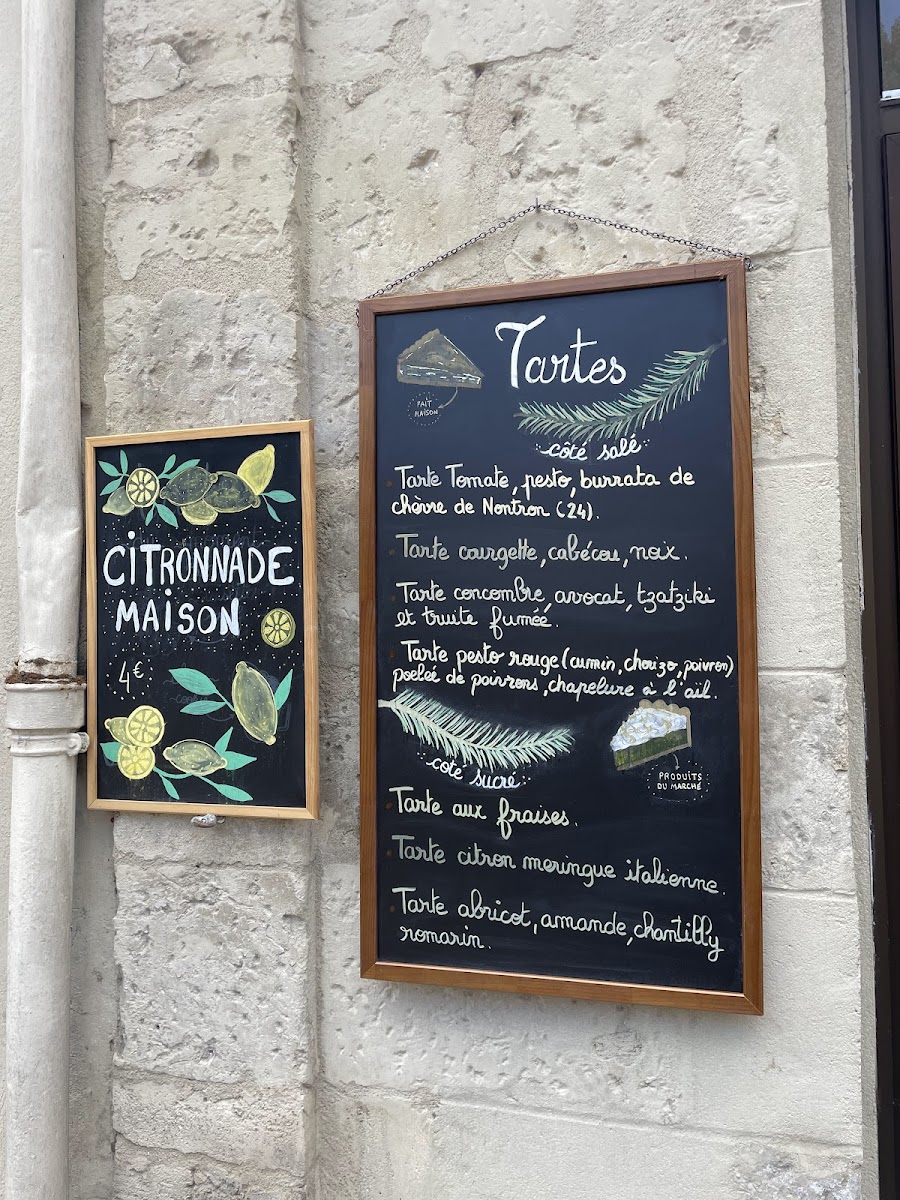 CITRONNADE
MAISON
4€
Tartes
FAIT
MAISON
côté salé
Tarte Tomate, pesto, burrata de
chèvre de Nontron (24).
Tarte courgette, cabécou, noix.
Tarte concombre, avocat, tzatziki
et truite fumée.
Tarte pesto rouge (cumin, chorizo, poivron)
poelée de poivrons, chapelure à l'ail.
côté sucré
PRODUITS
DU MARCHÉ
Tarte aux fraises.
Tarte citron meringue italienne.
Tarte abricot, amande, chantilly
romarin.